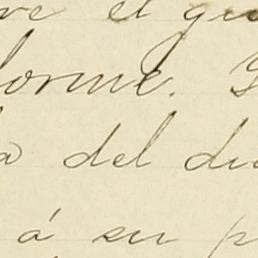 re el qu
forme.
a del di
á su p